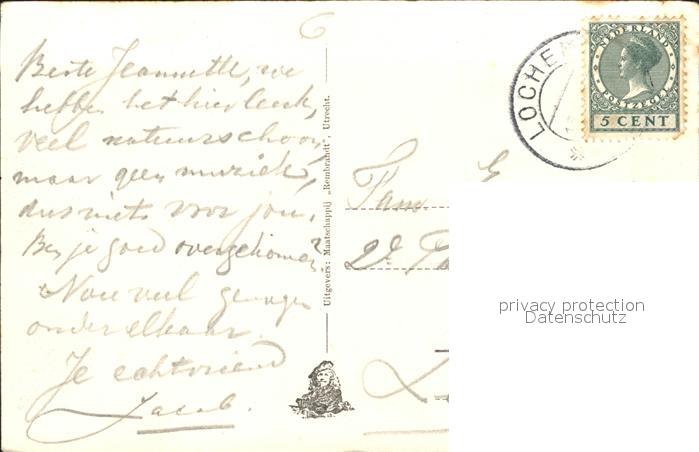 Beste Jeannette, we
hebben het hier leuk,
veel natuurschoon,
maar geen muziek,
dus niets voor jou.
Ben je goed overgekomen?
Nou veel genoegen
onder elkaar.
Je echtvriend
Jacob.
Uitgevers: Maatschappij „Rembrandt", Utrecht.
LOCHEM
NEDERLAND
POSTZEGEL
5 CENT
Fam.
2e
privacy protection
Datenschutz